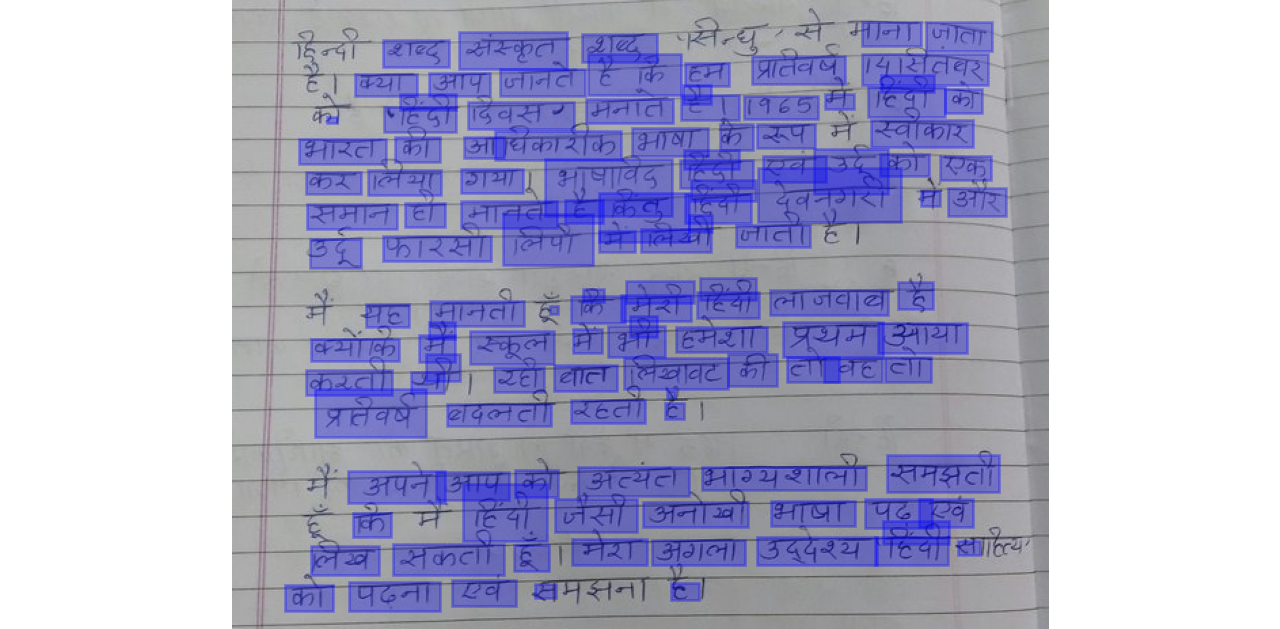 हिन्दी शब्द संस्कृत शब्द 'सिन्धु' से माना जाता
है। क्या आप जानते है कि हम प्रतिवर्ष 14 सितंबर
को 'हिंदी दिवस' मनाते है। 1965 में हिंदी को
भारत की आधिकारीक भाषा के रूप में स्वीकार
कर लिया गया। भाषाविद हिंदी एवं उर्दू को एक
समान ही मानते है किंतु हिंदी देवनगरी में और
उर्दू फारसी लिपी में लिखी जाती है।
मैं यह मानती हूँ कि मेरी हिंदी लाजवाब है
क्योंकि मैं स्कूल में भी हमेशा प्रथम आया
करती थी। रही बात लिखावट की तो वह तो
प्रतिवर्ष बदलती रहती है।
मैं अपने आप को अत्यंत भाग्यशाली समझती
हूँ कि मैं हिंदी जैसी अनोखी भाषा पढ़ एवं
लिख सकती हूँ। मेरा अगला उद्देश्य हिंदी साहित्य
को पढ़ना एवं समझना है।